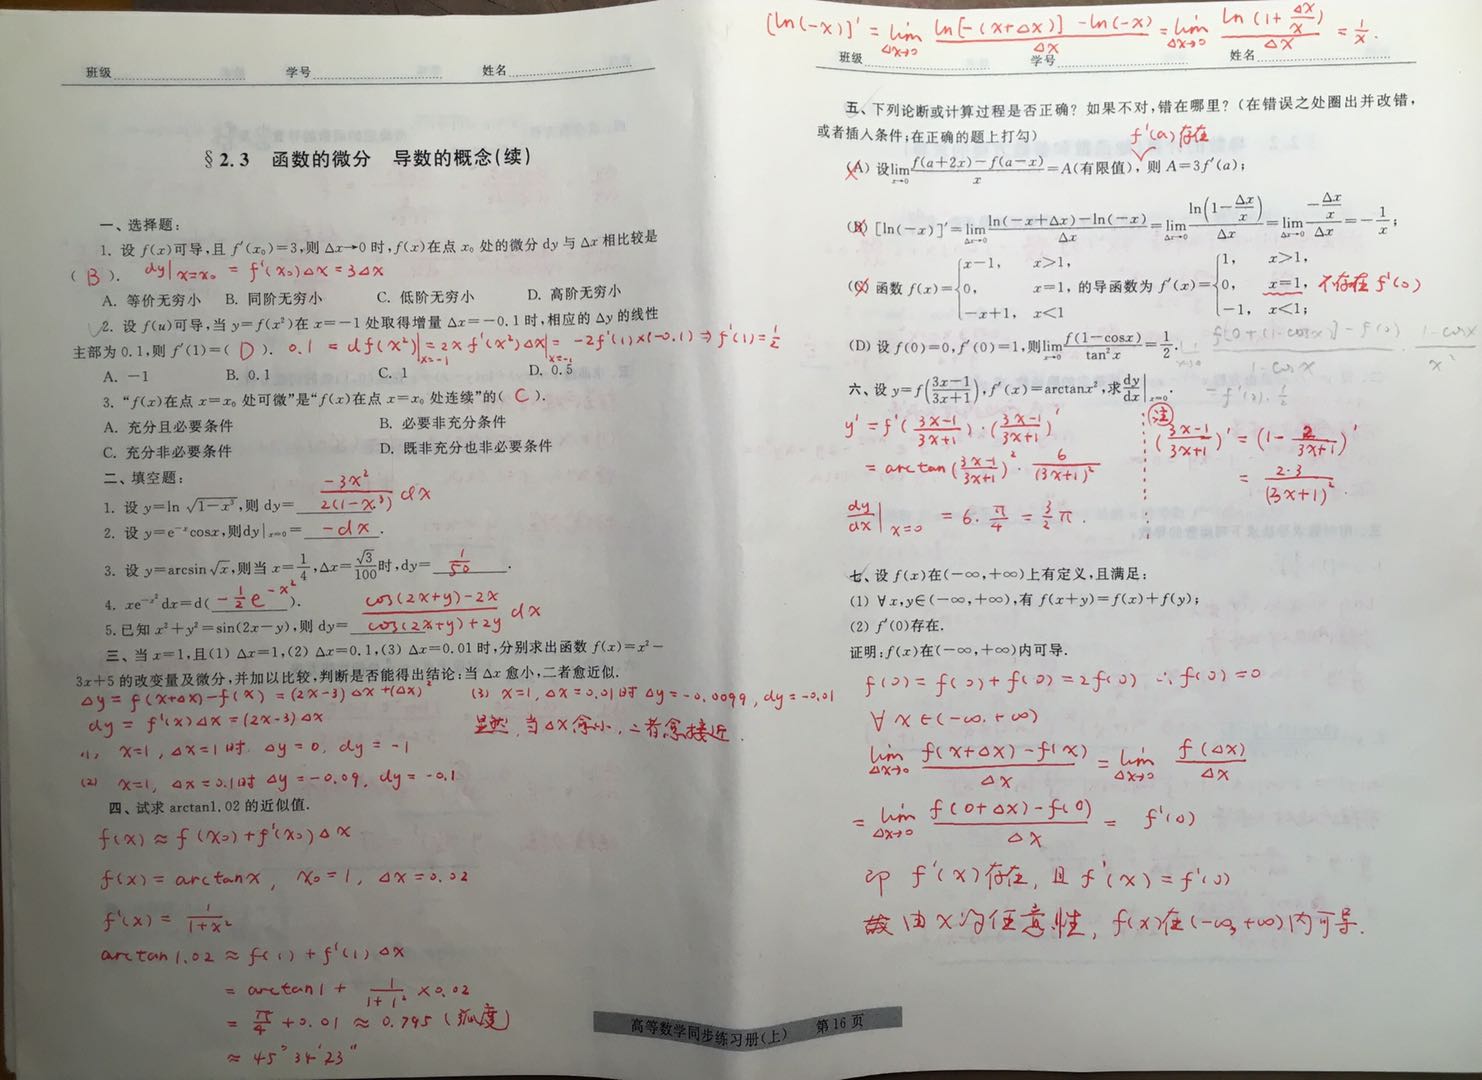 班级 学号 姓名
§2.3 函数的微分 导数的概念(续)
一、选择题:
1. 设 f(x)可导,且 f′(x₀)=3,则 Δx→0 时,f(x)在点 x₀ 处的微分 dy 与 Δx 相比较是
( B ). dy|ₓ₌ₓ₀ = f′(x₀)Δx = 3Δx
A. 等价无穷小 B. 同阶无穷小 C. 低阶无穷小 D. 高阶无穷小
2. 设 f(u)可导,当 y=f(x²)在 x=−1 处取得增量 Δx=−0.1 时,相应的 Δy 的线性
主部为 0.1,则 f′(1)=( D ). 0.1 = df(x²)|ₓ₌₋₁ = 2x f′(x²)Δx|ₓ₌₋₁ = −2f′(1)×(−0.1) ⇒ f′(1)=1/2
A. −1 B. 0.1 C. 1 D. 0.5
3. “f(x)在点 x=x₀ 处可微”是“f(x)在点 x=x₀ 处连续”的( C ).
A. 充分且必要条件 B. 必要非充分条件
C. 充分非必要条件 D. 既非充分也非必要条件
二、填空题:
1. 设 y=ln √(1−x³),则 dy= −3x²/2(1−x³) dx
2. 设 y=e⁻ˣcosx,则dy|ₓ₌₀= −dx .
3. 设 y=arcsin √x,则当 x=1/4,Δx=√3/100时,dy= 1/50 .
4. xe^(−x²)dx=d( −1/2 e^(−x²) ).
5.已知 x²+y²=sin(2x−y),则 dy= (cos(2x+y)−2x)/(cos(2x+y)+2y) dx
三、当 x=1,且(1) Δx=1,(2) Δx=0.1,(3) Δx=0.01 时,分别求出函数 f(x)=x²−
3x+5 的改变量及微分,并加以比较,判断是否能得出结论:当 Δx 愈小,二者愈近似.
Δy = f(x+Δx)−f(x) = (2x−3)Δx+(Δx)²
dy = f′(x)Δx = (2x−3)Δx
(1) x=1, Δx=1时. Δy=0, dy=−1
(2) x=1, Δx=0.1时 Δy=−0.09, dy=−0.1
(3) x=1, Δx=0.01时 Δy=−0.0099, dy=−0.01
显然,当Δx愈小,二者愈接近.
四、试求 arctan1.02 的近似值.
f(x) ≈ f(x₀)+f′(x₀)Δx
f(x) = arctanx, x₀=1, Δx=0.02
f′(x) = 1/(1+x²)
arctan1.02 ≈ f(1)+f′(1)Δx
= arctan1 + 1/(1+1²) ×0.02
= π/4 +0.01 ≈ 0.795 (弧度)
≈ 45°34′23″
[ln(−x)]′ = lim Δx→0 (ln[−(x+Δx)] −ln(−x))/Δx = lim Δx→0 ln(1+Δx/x)/Δx = 1/x.
班级 学号 姓名
五、下列论断或计算过程是否正确?如果不对,错在哪里?(在错误之处圈出并改错,
或者插入条件;在正确的题上打勾) f′(a)存在
(A) 设lim x→0 (f(a+2x)−f(a−x))/x=A(有限值),则 A=3f′(a);
(B) [ln(−x)]′=lim Δx→0 (ln(−x+Δx)−ln(−x))/Δx=lim Δx→0 ln(1−Δx/x)/Δx=lim Δx→0 (−Δx/x)/Δx=−1/x;
(C) 函数 f(x)={x−1, x>1, 0, x=1, −x+1, x<1 的导函数为 f′(x)={1, x>1, 0, x=1, −1, x<1; 不存在 f′(0)
(D) 设 f(0)=0,f′(0)=1,则lim x→0 f(1−cosx)/tan²x=1/2. lim x→0 (f[0+(1−cosx)]−f(0))/(1−cosx) · (1−cosx)/x²
= f′(0)·1/2
六、设 y=f((3x−1)/(3x+1)),f′(x)=arctanx²,求dy/dx|ₓ₌₀.
y′ = f′((3x−1)/(3x+1))·((3x−1)/(3x+1))′
= arctan((3x−1)/(3x+1))² · 6/(3x+1)²
dy/dx|ₓ₌₀ = 6·π/4 = 3/2 π.
注 ((3x−1)/(3x+1))′ = (1−2/(3x+1))′
= 2·3/(3x+1)².
七、设 f(x)在(−∞,+∞)上有定义,且满足:
(1) ∀x,y∈(−∞,+∞),有 f(x+y)=f(x)+f(y);
(2) f′(0)存在.
证明:f(x)在(−∞,+∞)内可导.
f(0)=f(0)+f(0)=2f(0) ∴f(0)=0
∀ x∈(−∞,+∞)
lim Δx→0 (f(x+Δx)−f(x))/Δx = lim Δx→0 f(Δx)/Δx
= lim Δx→0 (f(0+Δx)−f(0))/Δx = f′(0)
即 f′(x)存在,且 f′(x)=f′(0)
故由x的任意性, f(x)在(−∞,+∞)内可导.
高等数学同步练习册(上) 第16页